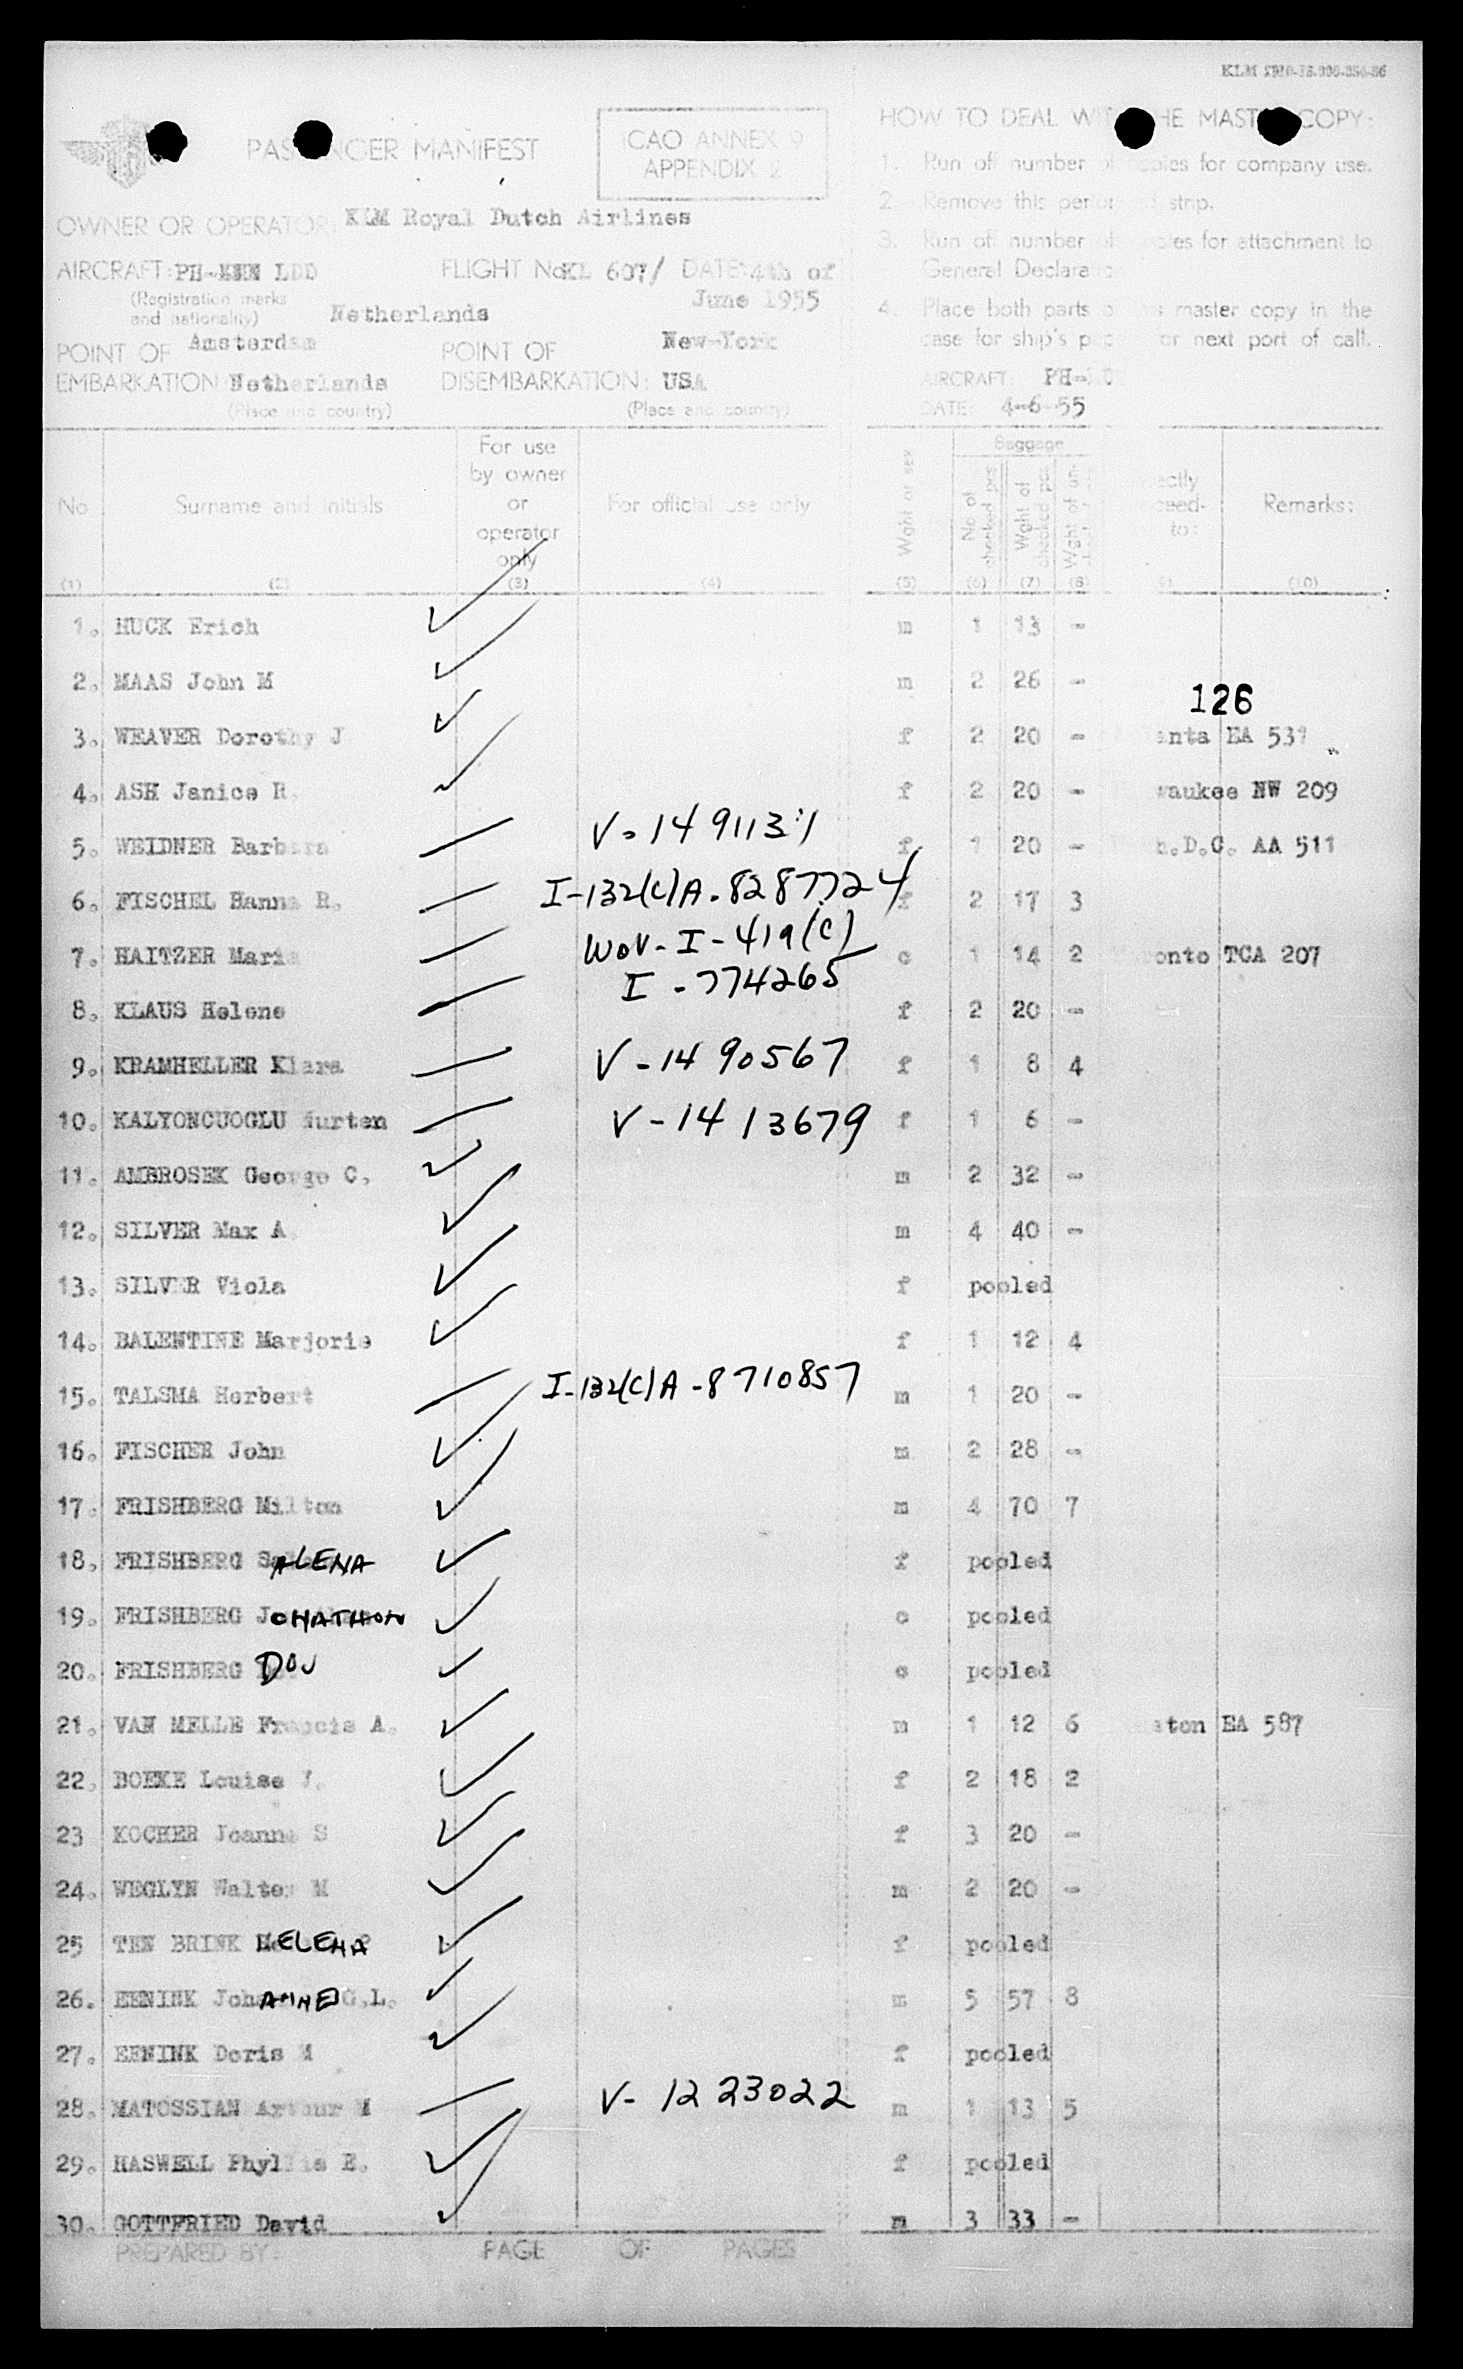 PASSENGER MANIFEST
ICAO ANNEX 9
APPENDIX 2
OWNER OR OPERATOR: KLM Royal Dutch Airlines
AIRCRAFT: LDD FLIGHT No: KL 607/ DATE: 4th of
(Registration marks and nationality) Netherlands June 1955
POINT OF EMBARKATION: Amsterdam Netherlands
(Place and country)
POINT OF DISEMBARKATION: New-York USA
(Place and country)
HOW TO DEAL WITH THE MASTER COPY:
1. Run off number of copies for company use.
2. Remove this strip.
3. Run off number of copies for attachment to
General Declaration
4. Place both parts of this master copy in the
case for ship's for next port of call.
AIRCRAFT: PH-
DATE: 4-6-55
No Surname and initials For use by owner or operator only For official use only Wght or sex Baggage No of checked pcs Wght of checked pcs Wght of un- ectly ceed- to: Remarks:
(1) (2) (3) (4) (5) (6) (7) (8) (10)
1. HUCK Erich ✓ m 1 13 -
2. MAAS John M ✓ m 2 26 -
126
3. WEAVER Dorothy J ✓ f 2 20 - anta EA 537
4. ASH Janice R. ✓ f 2 20 - waukee NW 209
5. WEIDNER Barbara — V-1491131 f 1 20 - h.D.C. AA 511
6. FISCHEL Hanna R. — I-132(C)A-8287724 f 2 17 3
7. HAITZER Maria — WOV-I-419(C) c 1 14 2 onto TCA 207
I-774265
8. KLAUS Helene — f 2 20 -
9. KRAMHELLER Klara — V-1490567 f 1 8 4
10. KALYONCUOGLU Nurten — V-1413679 f 1 6 -
11. AMBROSEK George C. ✓ m 2 32 -
12. SILVER Max A ✓ m 4 40 -
13. SILVER Viola ✓ f pooled
14. BALENTINE Marjorie ✓ f 1 12 4
15. TALSMA Herbert — I-132(C)A-8710857 m 1 20 -
16. FISCHER John ✓ m 2 28 -
17. FRISHBERG Milton ✓ m 4 70 7
18. FRISHBERG SALENA ✓ f pooled
19. FRISHBERG JOHATHON ✓ c pooled
20. FRISHBERG DOV ✓ c pooled
21. VAN MELLE Francis A. ✓ m 1 12 6 ston EA 587
22. BOEKE Louise J. ✓ f 2 18 2
23 KOCHER Joanna S ✓ f 3 20 -
24. WEGLYN Walter M ✓ m 2 20 -
25 TEN BRINK HELENA ✓ f pooled
26. EENINK Johannes G.L. ✓ m 5 57 8
27. EENINK Doris M ✓ f pooled
28. MATOSSIAN Arthur M — V-1223022 m 1 13 5
29. HASWELL Phyllis E. ✓ f pooled
30. GOTTFRIED David ✓ m 3 33 -
PREPARED BY: PAGE OF PAGES